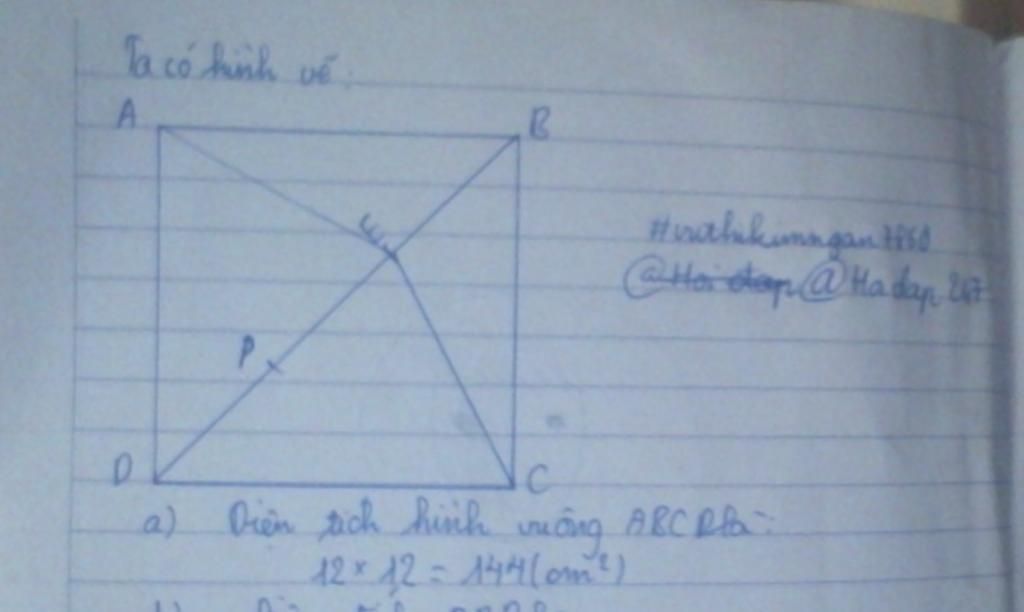 Ta có hình vẽ:
A
B
E
#vuthikimngan7860
@Hoi dap @Hadap 247
P
D
C
a) Diện tích hình vuông ABCD là:
12 × 12 = 144 (cm²)